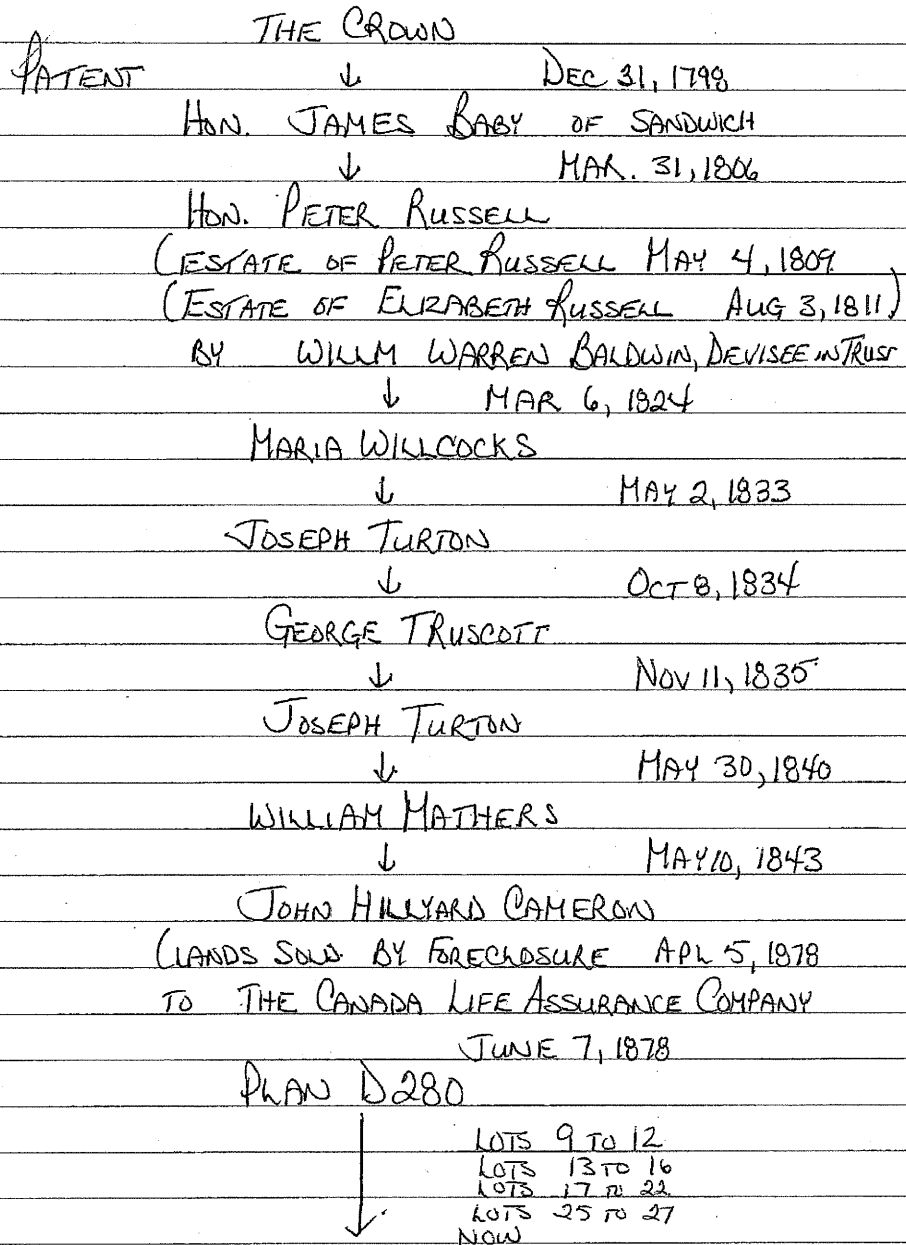 THE CROWN
PATENT ↓ DEC 31, 1798
HON. JAMES BABY OF SANDWICH
↓ MAR. 31, 1806
HON. PETER RUSSELL
(ESTATE OF PETER RUSSELL MAY 4, 1809
(ESTATE OF ELIZABETH RUSSELL AUG 3, 1811)
BY WILLM WARREN BALDWIN, DEVISEE IN TRUST
↓ MAR 6, 1824
MARIA WILLCOCKS
↓ MAY 2, 1833
JOSEPH TURTON
↓ OCT 8, 1834
GEORGE TRUSCOTT
↓ NOV 11, 1835
JOSEPH TURTON
↓ MAY 30, 1840
WILLIAM MATHERS
↓ MAY 10, 1843
JOHN HILLYARD CAMERON
(LANDS SOLD BY FORECLOSURE APL 5, 1878
TO THE CANADA LIFE ASSURANCE COMPANY
JUNE 7, 1878
PLAN D280
LOTS 9 TO 12
LOTS 13 TO 16
LOTS 17 TO 22
LOTS 25 TO 27
NOW